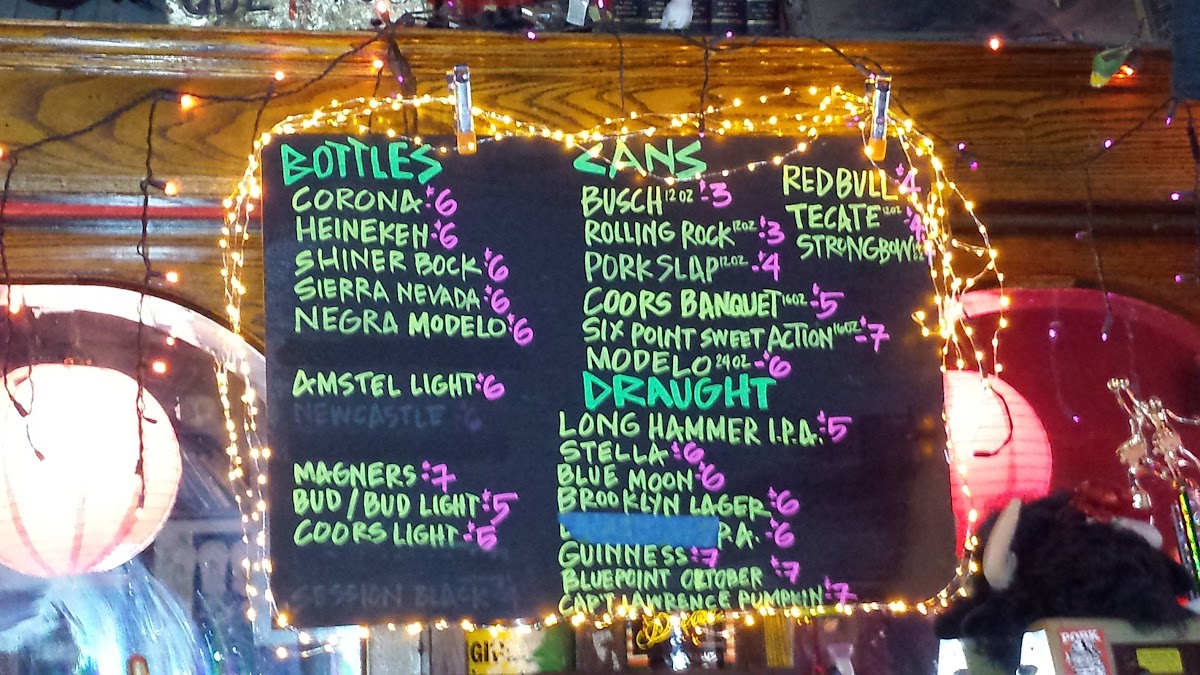 BOTTLES
CORONA $6
HEINEKEN $6
SHINER BOCK $6
SIERRA NEVADA $6
NEGRA MODELO $6
AMSTEL LIGHT $6
NEWCASTLE 6
MAGNERS $7
BUD/BUD LIGHT $5
COORS LIGHT $5
SESSION BLACK
CANS
BUSCH 12OZ $3
ROLLING ROCK 12OZ $3
PORK SLAP 12OZ $4
COORS BANQUET 16OZ $5
SIX POINT SWEET ACTION 16OZ $7
MODELO 24OZ $6
RED BULL $4
TECATE 12OZ $4
STRONGBOW
DRAUGHT
LONG HAMMER I.P.A. $5
STELLA $6
BLUE MOON $6
BROOKLYN LAGER $6
P.A. $6
GUINNESS $7
BLUEPOINT OKTOBER $7
CAP'T LAWRENCE PUMPKIN $7
PORK